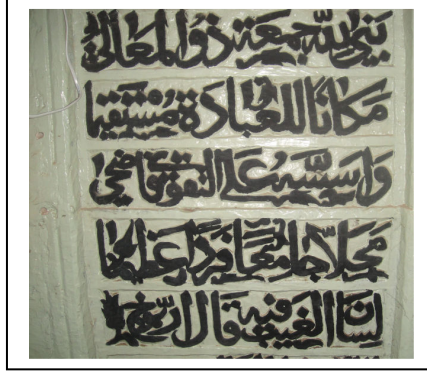 بنى لله جمعة ذو المعالي
مكانا للعبادة مستقيما
واسسه على التقوى فاضحى
محلا جامعا فردا عظيما
لسان الغيب فيه قال ارخ